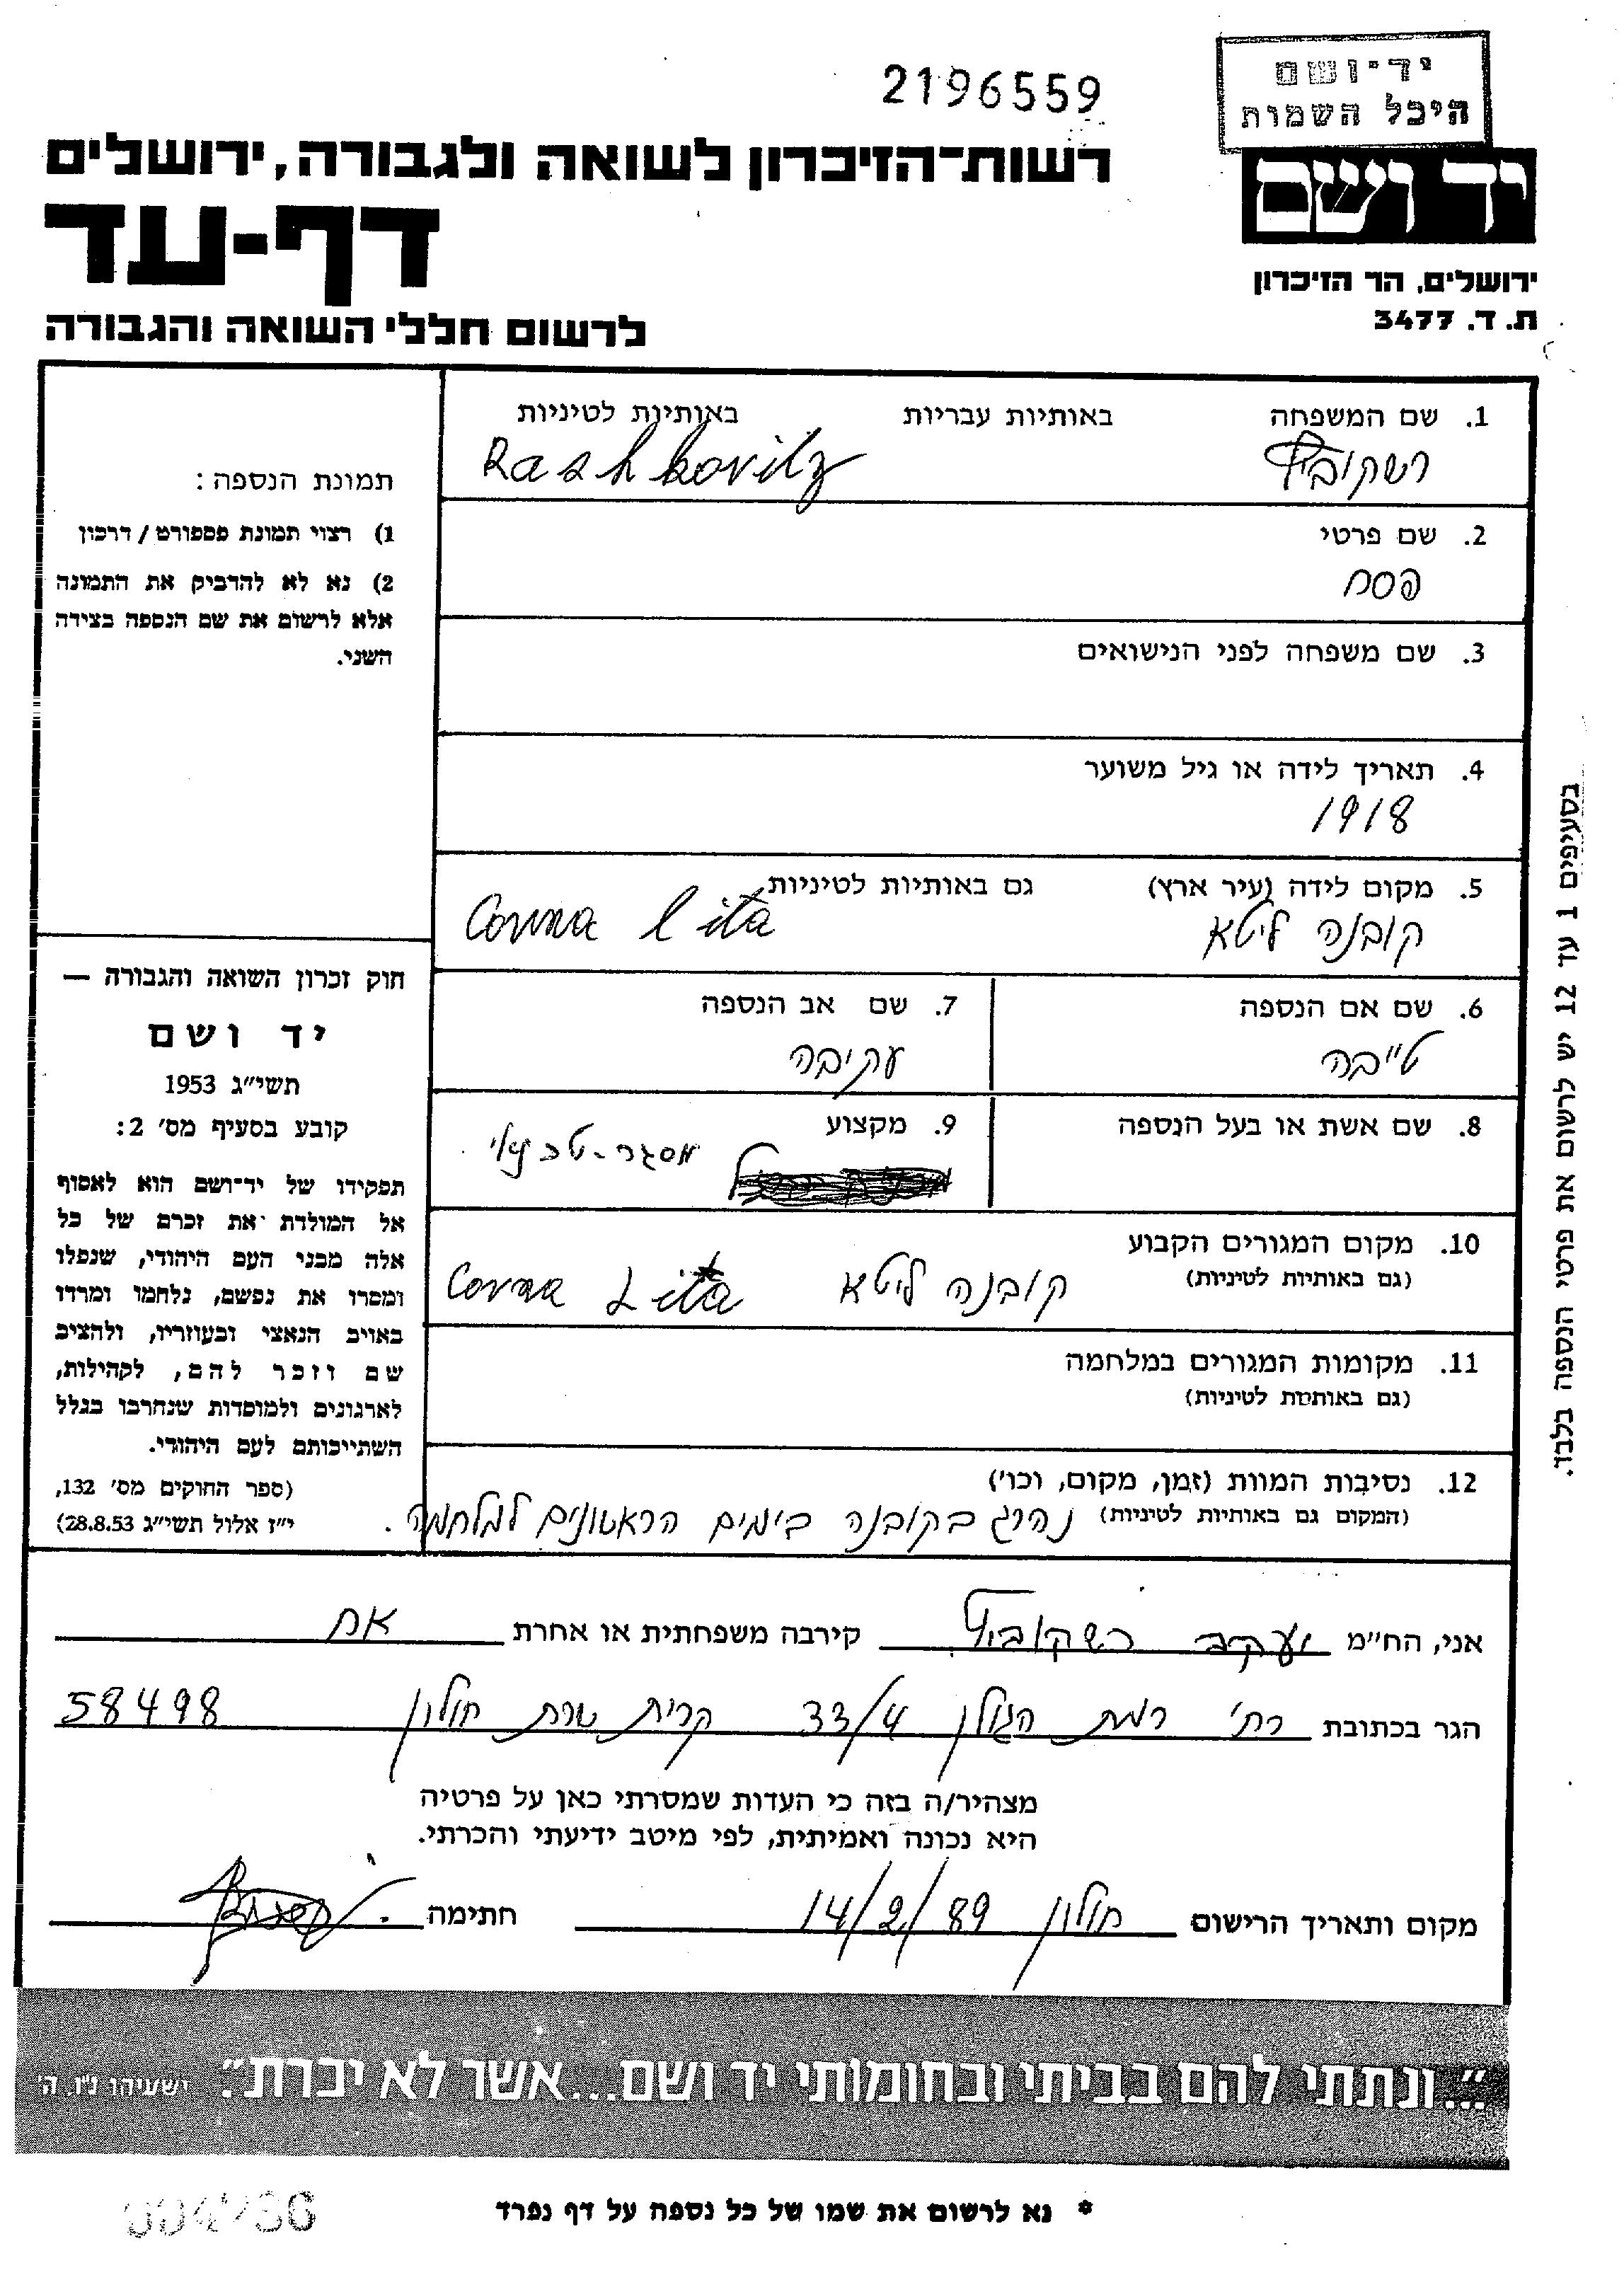 2196559
יד-ושם
היכל השמות
יד ושם
רשות-הזיכרון לשואה ולגבורה, ירושלים
דף-עד
ירושלים, הר הזיכרון
ת. ד. 3477
לרשום חללי השואה והגבורה
1. שם המשפחה באותיות עבריות באותיות לטיניות
רשקוביץ Rashkovitz
2. שם פרטי
פסח
3. שם משפחה לפני הנישואים
4. תאריך לידה או גיל משוער
1918
5. מקום לידה (עיר ארץ) גם באותיות לטיניות
קובנה ליטא Covna lita
6. שם אם הנספה
טייבה
7. שם אב הנספה
עקיבה
8. שם אשת או בעל הנספה
9. מקצוע
מסגר-טכנאי
10. מקום המגורים הקבוע
(גם באותיות לטיניות) קובנה ליטא Covna Lita
11. מקומות המגורים במלחמה
(גם באותיות לטיניות)
12. נסיבות המוות (זמן, מקום, וכו')
(המקום גם באותיות לטיניות) נהרג בקובנה בימים הראשונים למלחמה.
תמונת הנספה:
1) רצוי תמונת פספורט/דרכון
2) נא לא להדביק את התמונה
אלא לרשום את שם הנספה בצידה
השני.
חוק זכרון השואה והגבורה —
יד ושם
תשי״ג 1953
קובע בסעיף מס' 2:
תפקידו של יד-ושם הוא לאסוף
אל המולדת את זכרם של כל
אלה מבני העם היהודי, שנפלו
ומסרו את נפשם, נלחמו ומרדו
באויב הנאצי ובעוזריו, ולהציב
שם וזכר להם, לקהילות,
לארגונים ולמוסדות שנחרבו בגלל
השתייכותם לעם היהודי.
(ספר החוקים מס' 132,
י״ז אלול תשי״ג 28.8.53)
בסעיפים 1 עד 12 יש לרשום את פרטי הנספה בלבד.
אני, הח״מ יעקב רשקוביץ קירבה משפחתית או אחרת אח
הגר בכתובת רח' רמת הגולן 33/4 קרית שרת חולון 58498
מצהיר/ה בזה כי העדות שמסרתי כאן על פרטיה
היא נכונה ואמיתית, לפי מיטב ידיעתי והכרתי.
מקום ותאריך הרישום חולון 14/2/89 חתימה
״...ונתתי להם בביתי ובחומותי יד ושם...אשר לא יכרת״. ישעיהו נ״ו, ה'
* נא לרשום את שמו של כל נספה על דף נפרד